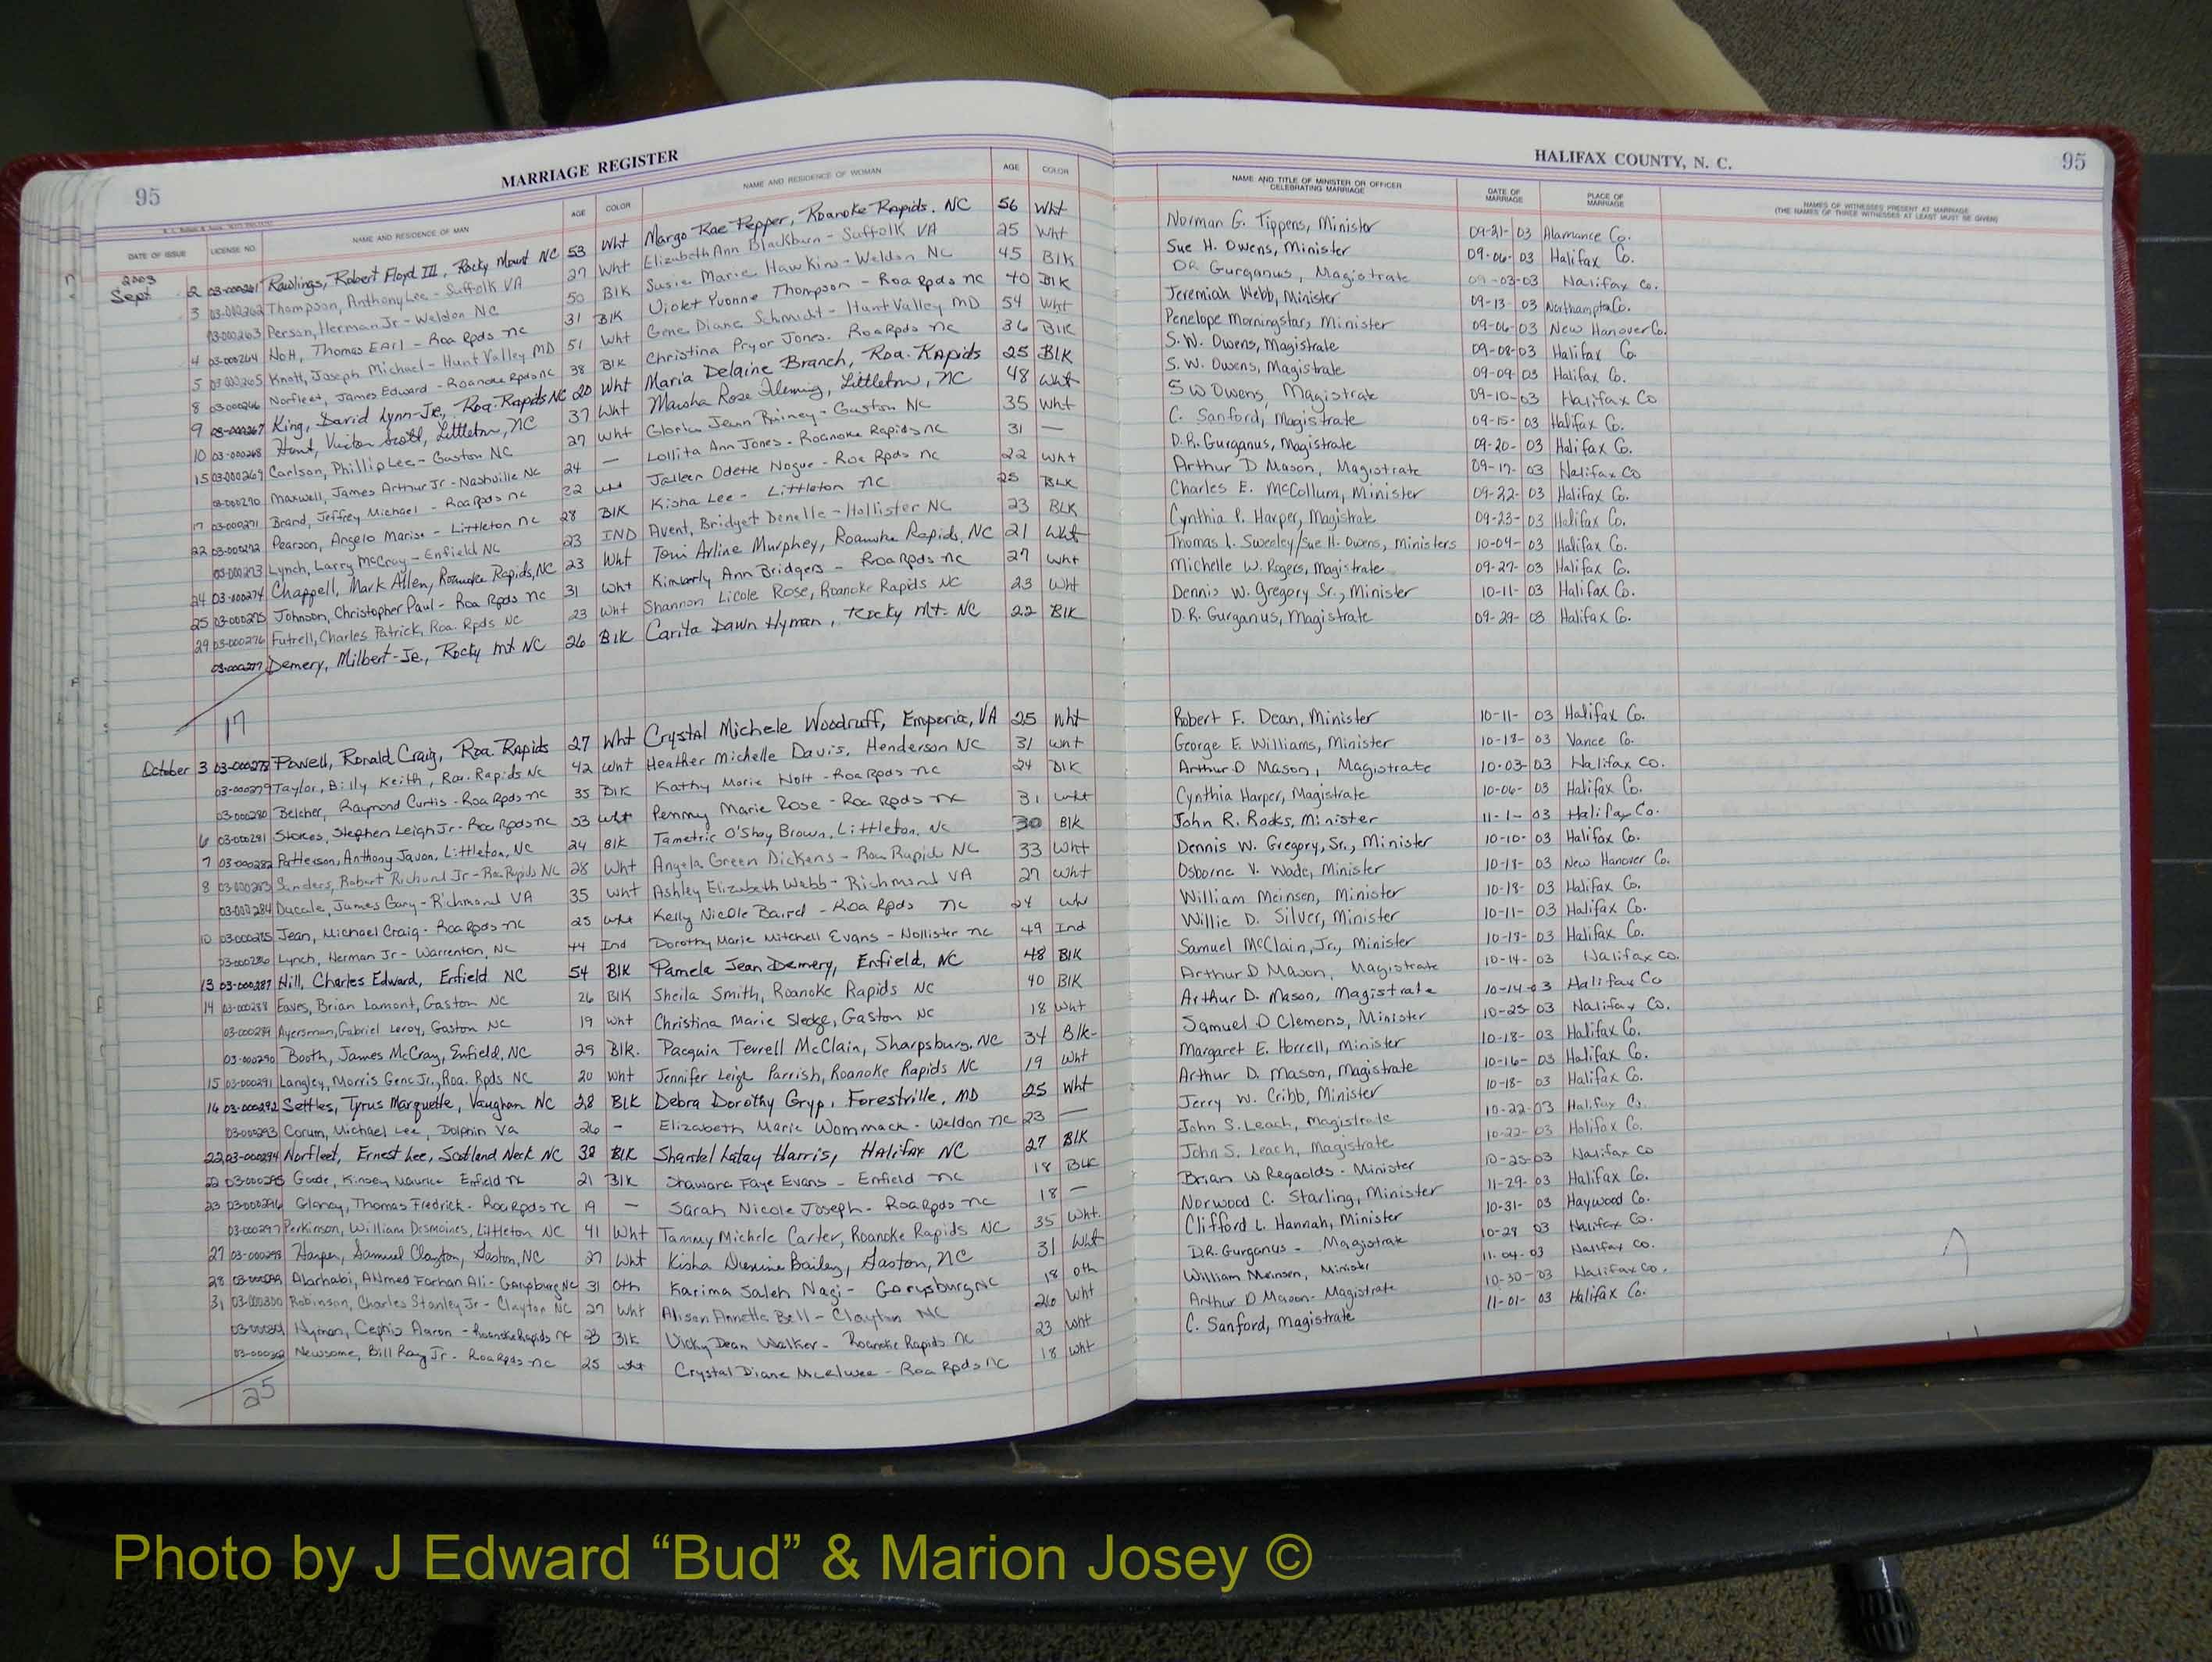 95 MARRIAGE REGISTER
HALIFAX COUNTY, N. C. 95
DATE OF ISSUE LICENSE NO. NAME AND RESIDENCE OF MAN AGE COLOR NAME AND RESIDENCE OF WOMAN AGE COLOR NAME AND TITLE OF MINISTER OR OFFICER CELEBRATING MARRIAGE DATE OF MARRIAGE PLACE OF MARRIAGE NAMES OF WITNESSES PRESENT AT MARRIAGE (THE NAMES OF THREE WITNESSES AT LEAST MUST BE GIVEN)
2003
Sept 2 03-000261 Rawlings, Robert Floyd III, Rocky Mount NC 53 Wht Margo Rae Pepper, Roanoke Rapids, NC 56 Wht Norman G. Tippens, Minister 09-21-03 Alamance Co.
3 03-000262 Thompson, Anthony Lee - Suffolk VA 27 Wht Elizabeth Ann Blackburn - Suffolk VA 25 Wht Sue H. Owens, Minister 09-06-03 Halifax Co.
03-000263 Person, Herman Jr - Weldon NC 50 Blk Susie Marie Hawkins - Weldon NC 45 Blk DR Gurganus, Magistrate 09-03-03 Halifax Co.
4 03-000264 Holt, Thomas Earl - Roa Rpds nc 31 Blk Violet Yvonne Thompson - Roa Rpds nc 40 Blk Jeremiah Webb, Minister 09-13-03 Northampto Co.
5 03-000265 Knott, Joseph Michael - Hunt Valley MD 51 Wht Gene Diane Schmidt - Hunt Valley MD 54 Wht Penelope Morningstar, Minister 09-06-03 New Hanover Co.
8 03-000266 Norfleet, James Edward - Roanoke Rpds nc 38 Blk Christina Pryor Jones. Roa Rpds nc 36 Blk S.W. Owens, Magistrate 09-08-03 Halifax Co
9 03-000267 King, David Lynn-Jr., Roa. Rapids NC 20 Wht Maria Delaine Branch, Roa. Rapids 25 Blk S. W. Owens, Magistrate 09-09-03 Halifax Co.
10 03-000268 Hunt, Scott, Littleton, NC 37 Wht Marsha Rose Fleming, Littleton, NC 48 Wht S W Owens, Magistrate 09-10-03 Halifax Co
15 03-000269 Carlson, Phillip Lee - Gaston NC 27 Wht Gloria Jean Rainey - Gaston NC 35 Wht C. Sanford, Magistrate 09-15-03 Halifax Co.
03-000270 Maxwell, James Arthur Jr - Nashville NC 24 — Lollita Ann Jones - Roanoke Rapids nc 31 — D.R. Gurganus, Magistrate 09-20-03 Halifax Co.
17 03-000271 Brand, Jeffrey Michael - Roa Rpds nc 22 wht Jaileen Odette Nogue - Roa Rpds nc 22 Wht Arthur D Mason, Magistrate 09-17-03 Halifax Co
22 03-000272 Pearson, Angelo Marise - Littleton nc 28 Blk Kisha Lee - Littleton nc 25 BLK Charles E. McCollum, Minister 09-22-03 Halifax Co.
03-000273 Lynch, Larry McCray - Enfield NC 23 IND Avent, Bridget Denelle - Hollister NC 23 BLK Cynthia P. Harper, Magistrate 09-23-03 Halifax Co.
24 03-000274 Chappell, Mark Allen, Roanoke Rapids, NC 23 Wht Toni Arline Murphey, Roanoke Rapids, NC 21 Wht Thomas L. Sweeley/Sue H. Owens, Ministers 10-04-03 Halifax Co.
25 03-000275 Johnson, Christopher Paul - Roa Rpds nc 31 Wht Kimberly Ann Bridgers - Roa Rpds nc 27 Wht Michelle W. Rogers, Magistrate 09-27-03 Halifax Co.
29 03-000276 Futrell, Charles Patrick, Roa. Rpds NC 23 Wht Shannon Licole Rose, Roanoke Rapids NC 23 Wht Dennis W. Gregory Sr., Minister 10-11-03 Halifax Co.
03-000277 Demery, Milbert-Jr., Rocky mt NC 26 Blk Carita Dawn Hyman, Rocky Mt. NC 22 Blk D.R. Gurganus, Magistrate 09-29-03 Halifax Co.
17
October 3 03-000278 Powell, Ronald Craig, Roa. Rapids 27 Wht Crystal Michele Woodruff, Emporia, VA 25 Wht Robert F. Dean, Minister 10-11-03 Halifax Co.
03-000279 Taylor, Billy Keith, Roa. Rapids NC 42 Wht Heather Michelle Davis, Henderson NC 31 Wht George E. Williams, Minister 10-18-03 Vance Co.
03-000280 Belcher, Raymond Curtis - Roa Rpds nc 35 Blk Kathy Marie Holt - Roa Rpds nc 24 Blk Arthur D Mason, Magistrate 10-03-03 Halifax Co.
6 03-000281 Stokes, Stephen Leigh Jr - Roa Rpds nc 53 Wht Penny Marie Rose - Roa Rpds nc 31 wht Cynthia Harper, Magistrate 10-06-03 Halifax Co.
7 03-000282 Patterson, Anthony Javon, Littleton, NC 24 Blk Tametric O'Shay Brown, Littleton, NC 30 Blk John R. Rooks, Minister 11-1-03 Halifax Co.
8 03-000283 Sanders, Robert Richard Jr - Roa Rapids NC 28 Wht Angela Green Dickens - Roa Rapids NC 33 Wht Dennis W. Gregory, Sr., Minister 10-10-03 Halifax Co.
03-000284 Ducale, James Gary - Richmond VA 35 Wht Ashley Elizabeth Webb - Richmond VA 27 Wht Osborne V. Wade, Minister 10-18-03 New Hanover Co.
10 03-000285 Jean, Michael Craig - Roa Rpds nc 25 wht Kelly Nicole Baird - Roa Rpds nc 24 Wht William Meinsen, Minister 10-18-03 Halifax Co.
03-000286 Lynch, Herman Jr - Warrenton, NC 44 Ind Dorothy Marie Mitchell Evans - Hollister nc 49 Ind Willie D. Silver, Minister 10-11-03 Halifax Co.
13 03-000287 Hill, Charles Edward, Enfield NC 54 Blk Pamela Jean Demery, Enfield, NC 48 Blk Samuel McClain, Jr., Minister 10-18-03 Halifax Co.
14 03-000288 Eaves, Brian Lamont, Gaston NC 26 Blk Sheila Smith, Roanoke Rapids NC 40 Blk Arthur D Mason, Magistrate 10-14-03 Halifax co.
03-000289 Ayersman, Gabriel Leroy, Gaston NC 19 Wht Christina Marie Sledge, Gaston NC 18 Wht Arthur D. Mason, Magistrate 10-14-03 Halifax Co
03-000290 Booth, James McCray, Enfield, NC 29 Blk. Pacquin Terrell McClain, Sharpsburg, NC 34 Blk- Samuel D Clemons, Minister 10-25-03 Halifax Co.
15 03-000291 Langley, Morris Gene Jr., Roa. Rpds NC 20 Wht Jennifer Leigh Parrish, Roanoke Rapids NC 19 Wht Margaret E. Harrell, Minister 10-18-03 Halifax Co.
16 03-000292 Settles, Tyrus Marquette, Vaughan NC 28 Blk Debra Dorothy Gryp, Forestville, MD 25 Wht Arthur D. Mason, Magistrate 10-16-03 Halifax Co.
03-000293 Corum, Michael Lee, Dolphin Va 26 - Elizabeth Marie Wommack - Weldon nc 23 — Jerry W. Cribb, Minister 10-18-03 Halifax Co.
22 03-000294 Norfleet, Ernest Lee, Scotland Neck NC 38 Blk Shantel Latay Harris, Halifax NC 27 Blk John S. Leach, Magistrate 10-22-03 Halifax Co
22 03-000295 Goode, Kinsey Maurice Enfield nc 21 Blk Shawara Faye Evans - Enfield nc 18 Blk John S. Leach, Magistrate 10-22-03 Halifax Co.
23 03-000296 Glancy, Thomas Fredrick - Roa Rpds nc 19 — Sarah Nicole Joseph - Roa Rpds nc 18 — Brian W Regaolds - Minister 10-25-03 Halifax Co
03-000297 Perkinson, William Desmoines, Littleton NC 41 Wht Tammy Michele Carter, Roanoke Rapids NC 35 Wht. Norwood C. Starling, Minister 11-29-03 Halifax Co.
27 03-000298 Harper, Samuel Clayton, Gaston, NC 27 Wht Kisha Bailey, Gaston, NC 31 Wht Clifford L. Hannah, Minister 10-31-03 Haywood Co.
28 03-000299 Alarhabi, Ahmed Farhan Ali - Garysburg NC 31 Oth Karima Saleh Nagi - Garysburg NC 18 oth D.R. Gurganus - Magistrate 10-29 03 Halifax Co.
31 03-000300 Robinson, Charles Stanley Jr - Clayton NC 27 Wht Alison Annette Bell - Clayton NC 26 Wht William Meinsen, Minister 11-04-03 Halifax Co.
03-000301 Hyman, Cephis Aaron - Roanoke Rapids nc 23 Blk Vicky Dean Walker - Roanoke Rapids nc 23 Wht Arthur D Mason - Magistrate 10-30-03 Halifax Co.
03-000302 Newsome, Bill Ray Jr. - Roa Rpds nc 25 wht Crystal Diane McElwee - Roa Rpds NC 18 Wht C. Sanford, Magistrate 11-01-03 Halifax Co.
25
Photo by J Edward “Bud” & Marion Josey ©